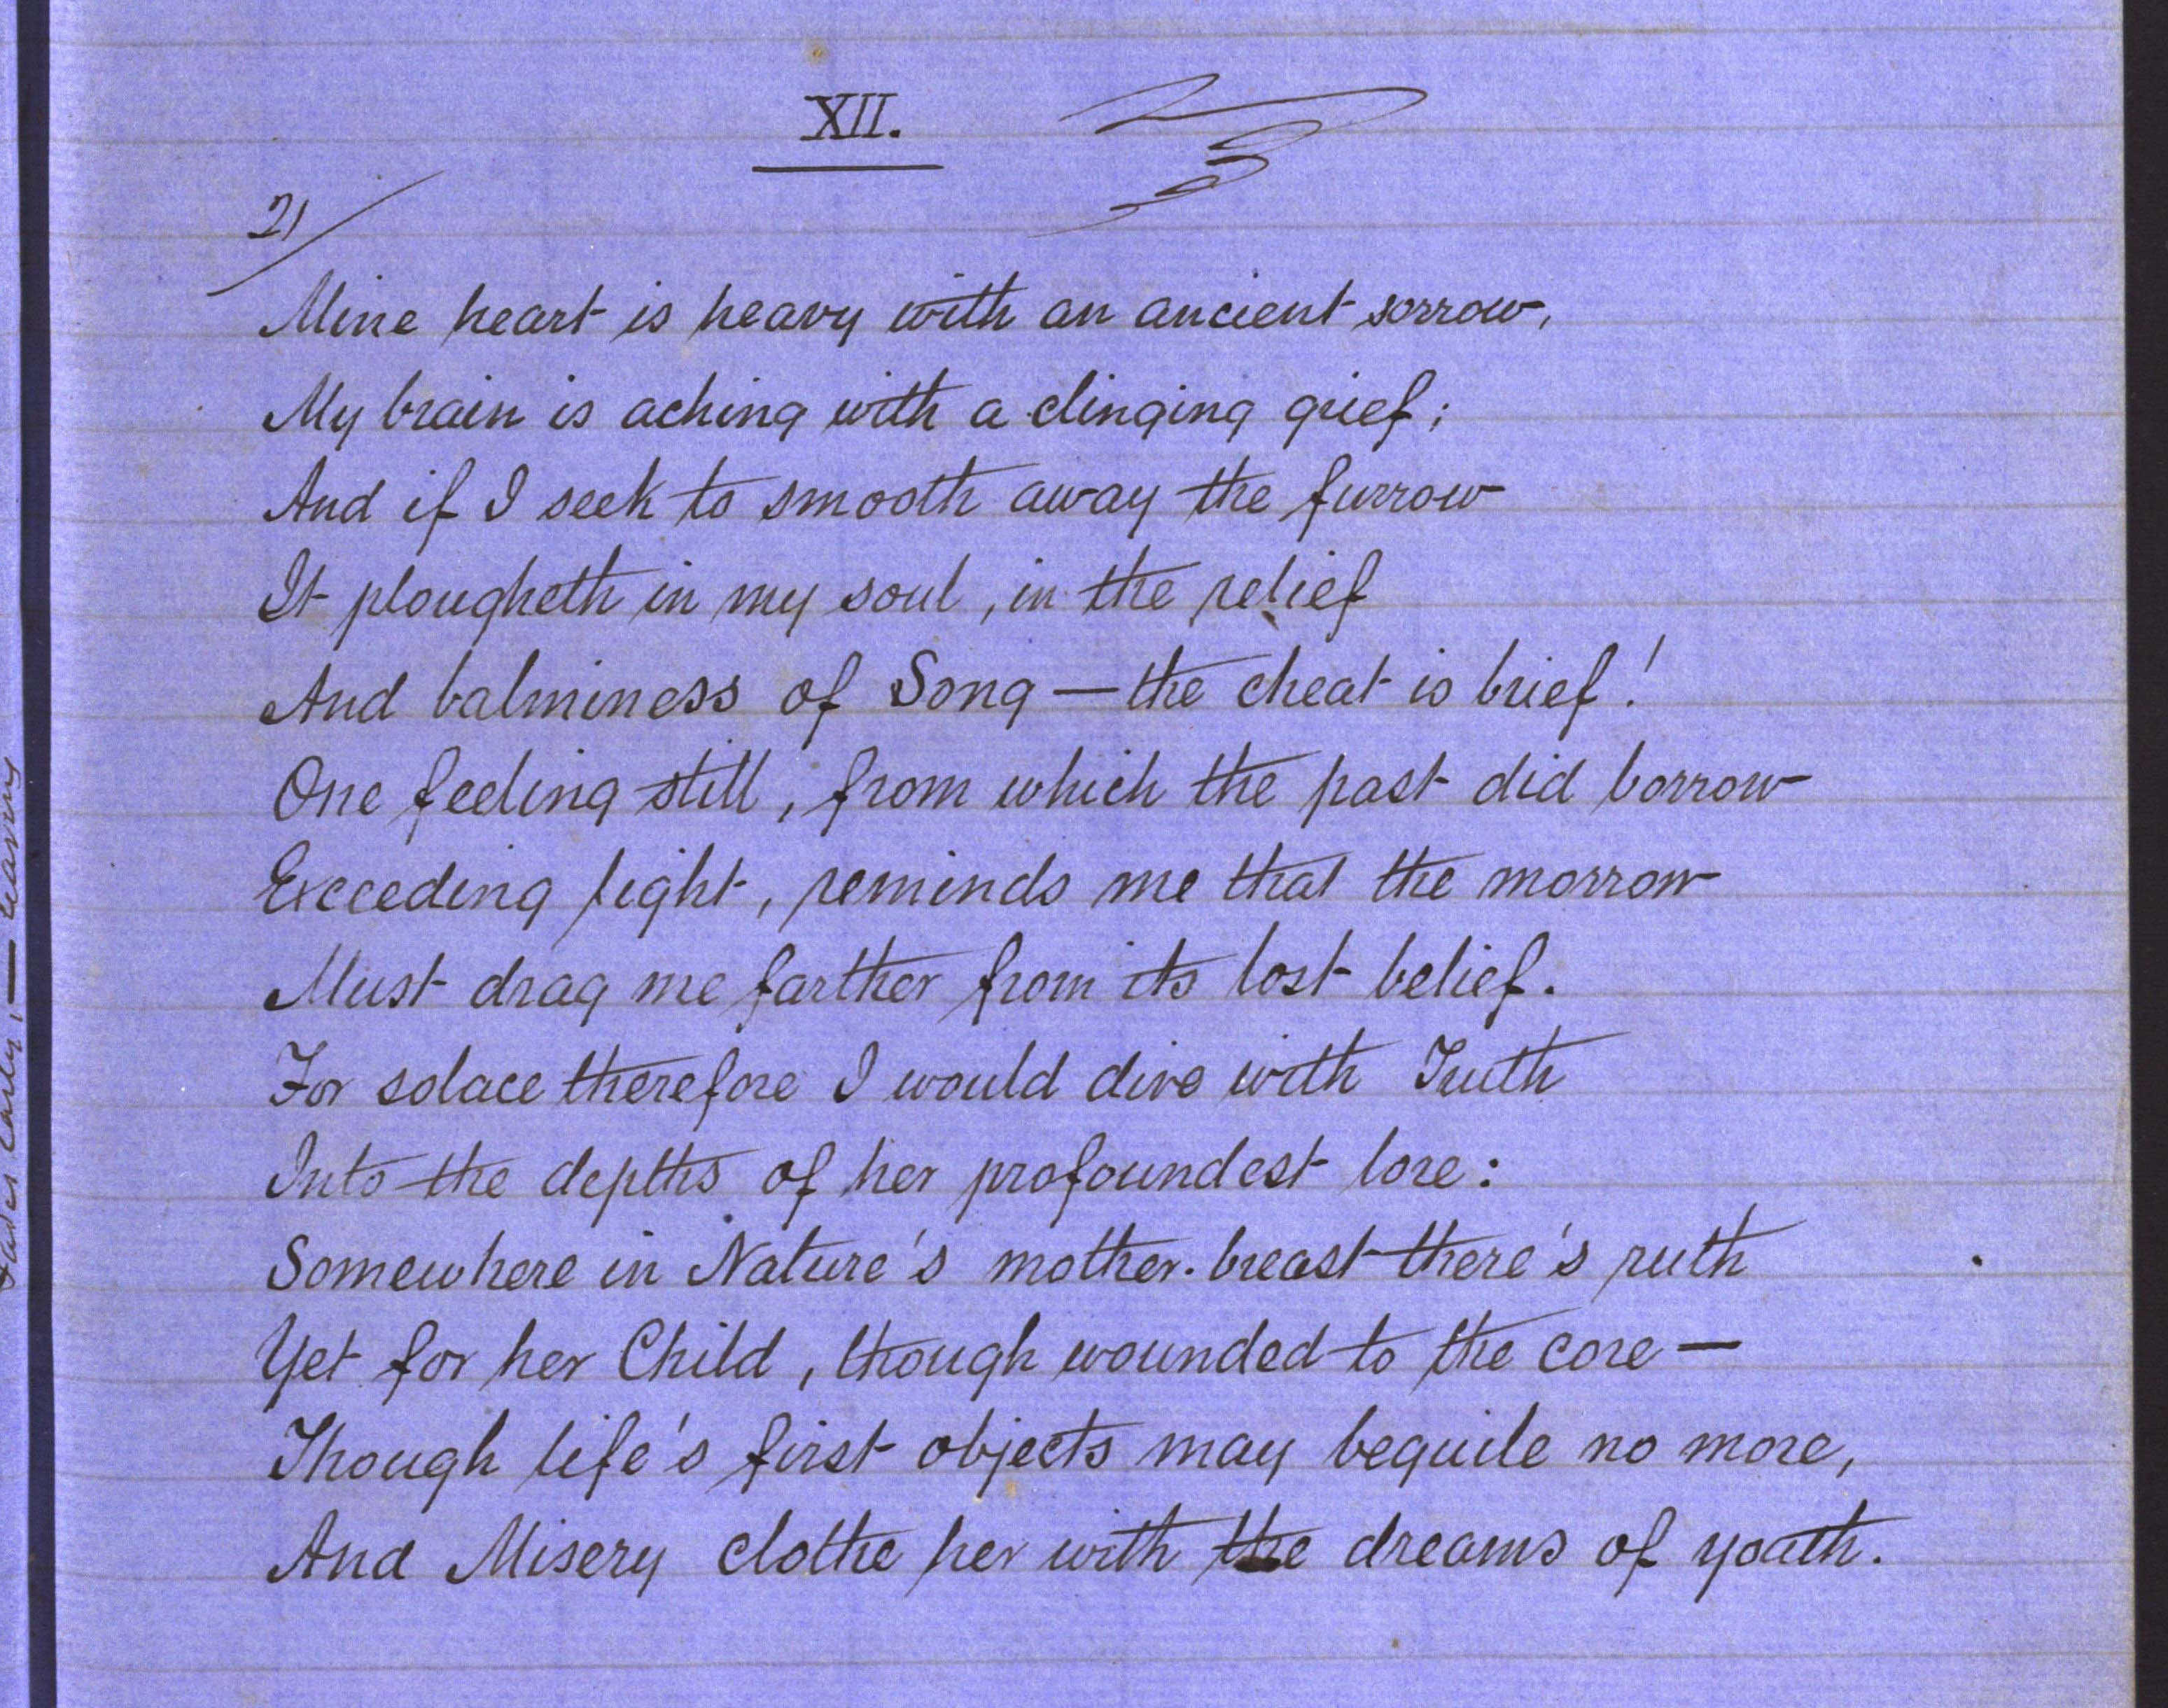 XII.
21
Mine heart is heavy with an ancient sorrow,
My brain is aching with a clinging grief;
And if I seek to smooth away the furrow
It plougheth in my soul, in the relief
And balminess of Song — the cheat is brief!
One feeling still, from which the past did borrow
Exceeding light, reminds me that the morrow
Must drag me farther from its lost belief.
For solace therefore I would dive with Truth
Into the depths of her profoundest lore:
Somewhere in Nature's mother-breast there's ruth
Yet for her Child, though wounded to the core —
Though life's first objects may beguile no more,
And Misery clothe her with the dreams of youth.
early, — leaving